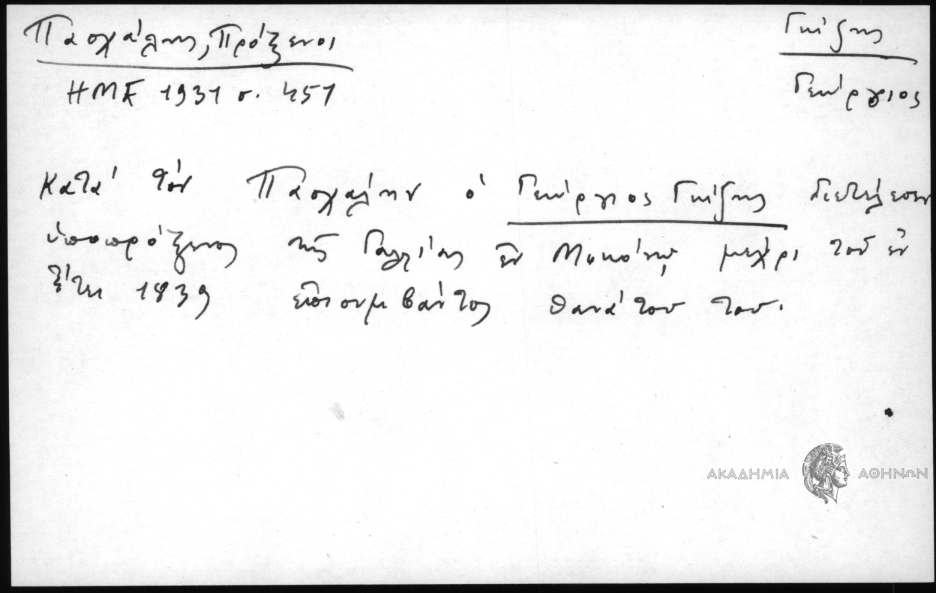 Πασχάλης, Πρόξενοι
ΗΜΕ 1931 σ. 451
Γκίζης
Γεώργιος
Κατά τόν Πασχάλην ὁ Γεώργιος Γκίζης διετέλεσεν
ὑποπρόξενος τῆς Γαλλίας ἐν Μυκόνῳ μέχρι τοῦ ἐν
ἔτει 1839 ἐπισυμβάντος θανάτου του.
ΑΚΑΔΗΜΙΑ ΑΘΗΝΩΝ